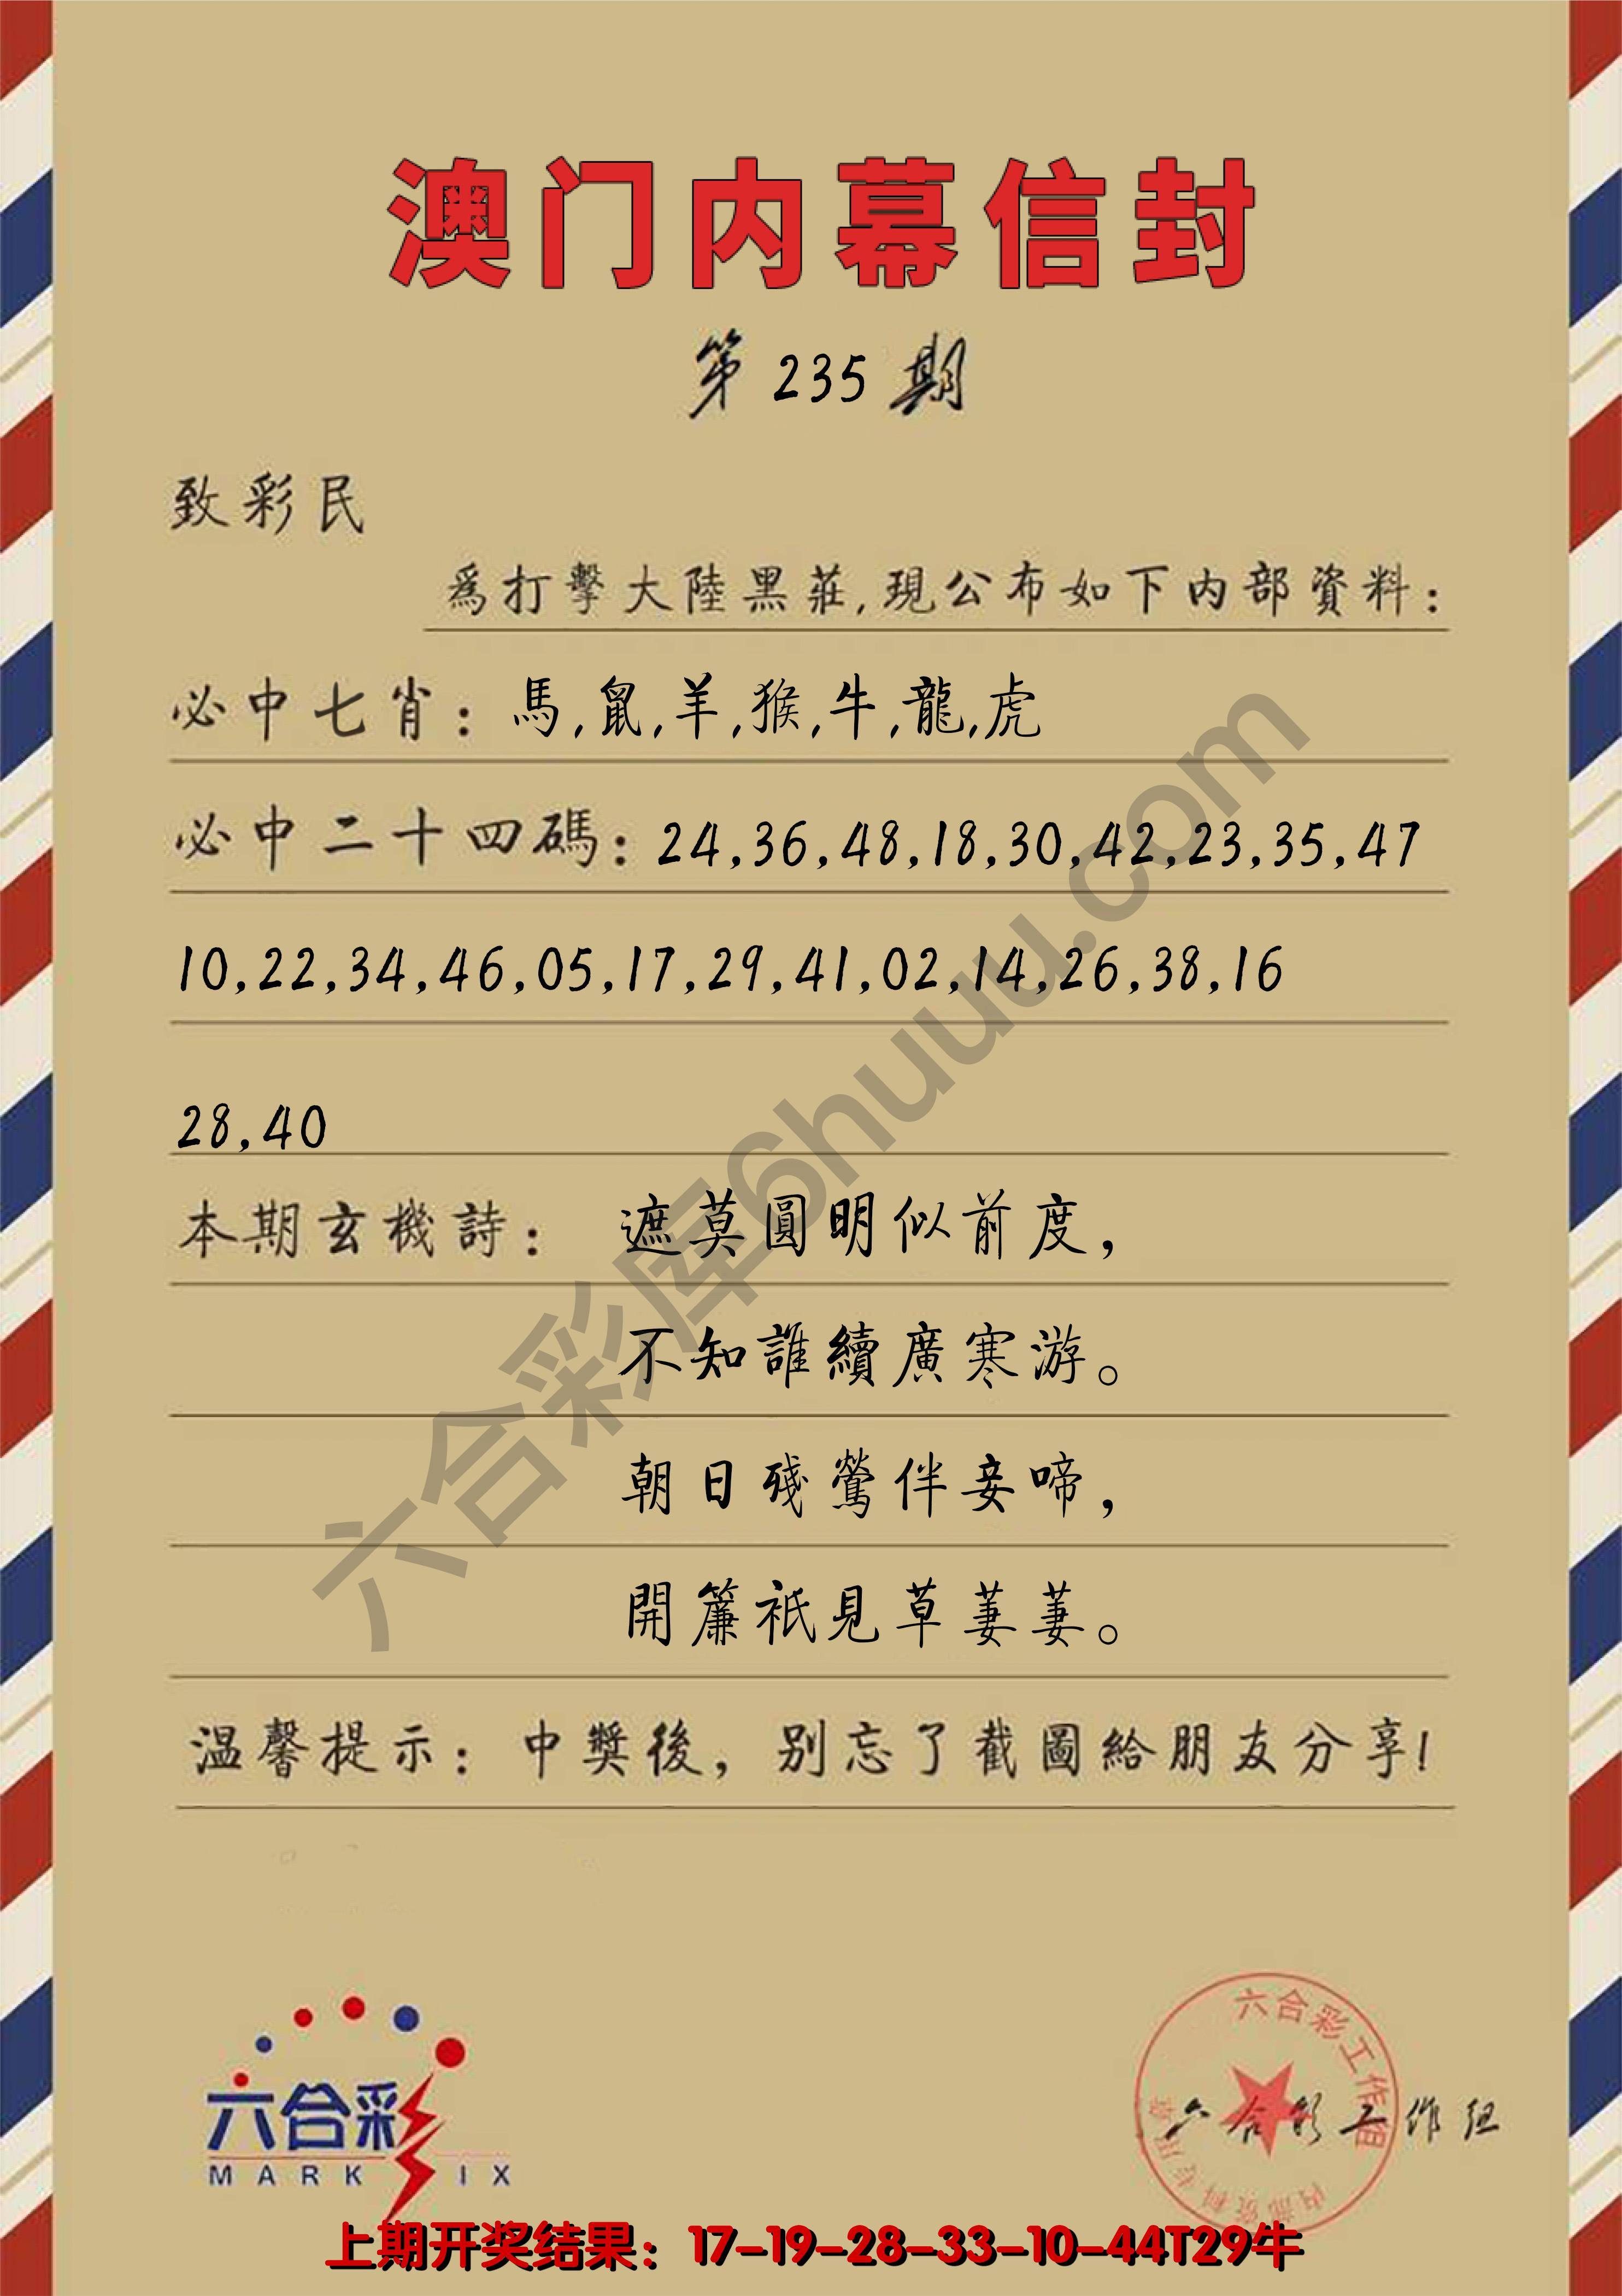 澳门内幕信封
第 235 期
致彩民
爲打擊大陸黑莊,現公布如下内部資料:
必中七肖: 馬,鼠,羊,猴,牛,龍,虎
必中二十四碼: 24,36,48,18,30,42,23,35,47
10,22,34,46,05,17,29,41,02,14,26,38,16
28,40
本期玄機詩: 遮莫圓明似前度,
不知誰續廣寒游。
朝日殘鶯伴妾啼,
開簾祇見草萋萋。
温馨提示: 中獎後, 别忘了截圖給朋友分享!
六合彩库6huuu.com
六合彩
MARK IX
六合彩工作组
内部资料专用章
六合彩工作组
上期开奖结果: 17-19-28-33-10-44T29牛